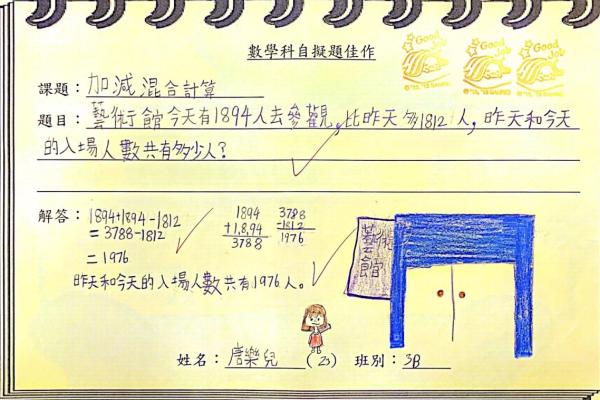 數學科自擬題佳作
Good Job Good Job Good Job
課題：加減混合計算
題目：藝術館今天有1894人去參觀，比昨天多1812人，昨天和今天
的入場人數共有多少人？
解答：1894+1894-1812
= 3788-1812
= 1976
昨天和今天的入場人數共有1976人。
1894
+1,8,94
3788
3788
-1812
1976
藝術
館
姓名：唐樂兒(23) 班別：3B